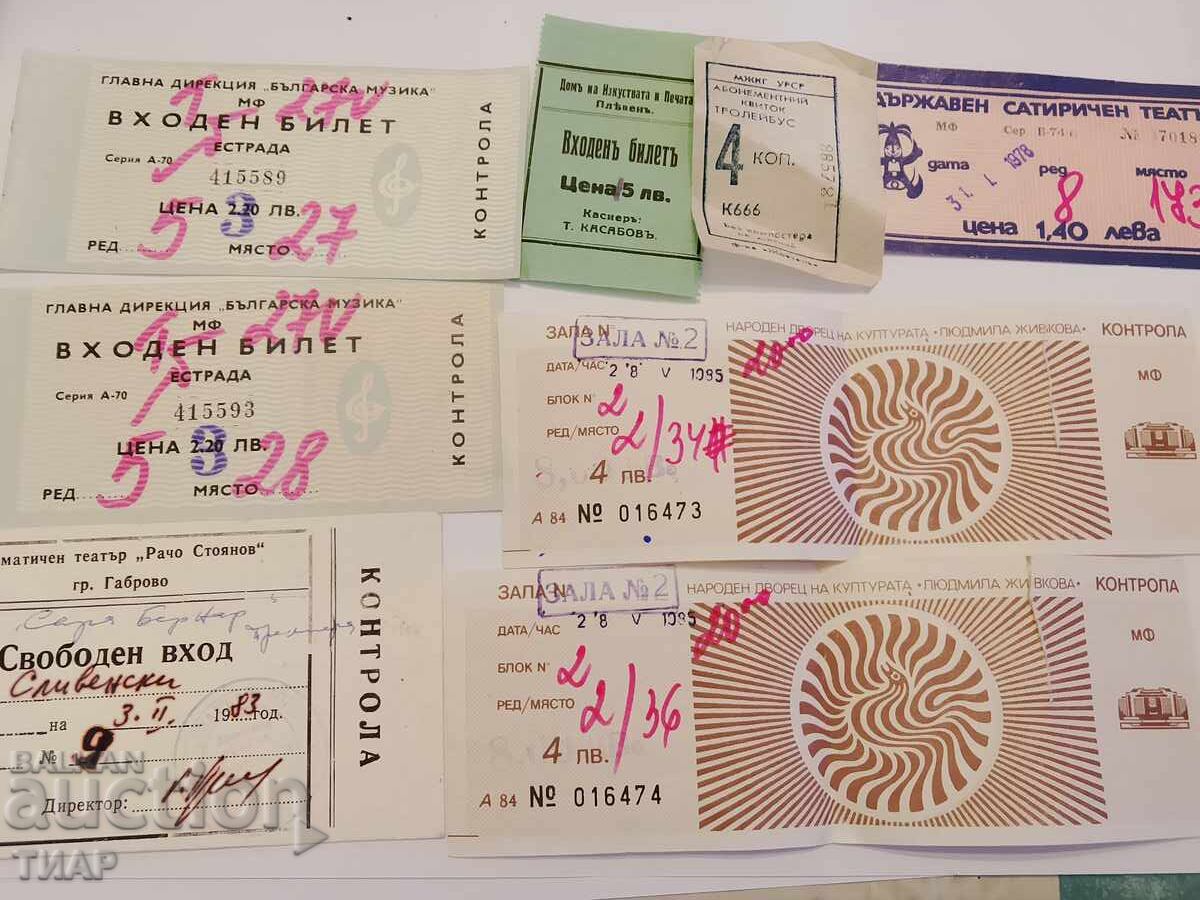 ГЛАВНА ДИРЕКЦИЯ „БЪЛГАРСКА МУЗИКА"
МФ
ВХОДЕН БИЛЕТ
ЕСТРАДА
Серия А-70
415589
ЦЕНА 2.20 ЛВ.
3
РЕД 5 МЯСТО 27
27 V
КОНТРОЛА
Домъ на Изкуствата и Печата
Плѣвенъ.
Входенъ билетъ
Цена 5 лв.
Касиеръ:
Т. КАСАБОВЪ.
МЖКГ УРСР
АБОНЕМЕНТНИЙ
КВИТОК
ТРОЛЕЙБУС
4 КОП.
К666
ДЪРЖАВЕН САТИРИЧЕН ТЕАТЪ
МФ Сер В-74 № 7018
дата ред място
31. I. 1978 8 173
цена 1,40 лева
ГЛАВНА ДИРЕКЦИЯ „БЪЛГАРСКА МУЗИКА"
МФ
ВХОДЕН БИЛЕТ
ЕСТРАДА
Серия А-70
415593
ЦЕНА 2.20 ЛВ.
3
РЕД 5 МЯСТО 28
27 V
КОНТРОЛА
ЗАЛА № ЗАЛА №2
НАРОДЕН ДВОРЕЦ НА КУЛТУРАТА • ЛЮДМИЛА ЖИВКОВА •
КОНТРОЛА
МФ
ДАТА/ЧАС 28 V 1985
20 00
БЛОК № 2
РЕД/МЯСТО 2/34
4 ЛВ.
А 84 № 016473
ЗАЛА № ЗАЛА №2
НАРОДЕН ДВОРЕЦ НА КУЛТУРАТА • ЛЮДМИЛА ЖИВКОВА •
КОНТРОЛА
МФ
ДАТА/ЧАС 28 V 1985
20 00
БЛОК № 2
РЕД/МЯСТО 2/36
4 ЛВ.
А 84 № 016474
матичен театър „Рачо Стоянов"
гр. Габрово
Сара Бернар
Свободен вход
Сливенски
на 3. II. 1983 год.
№ 9
Директор:
КОНТРОЛА
BALKAN
auction
ТИАР